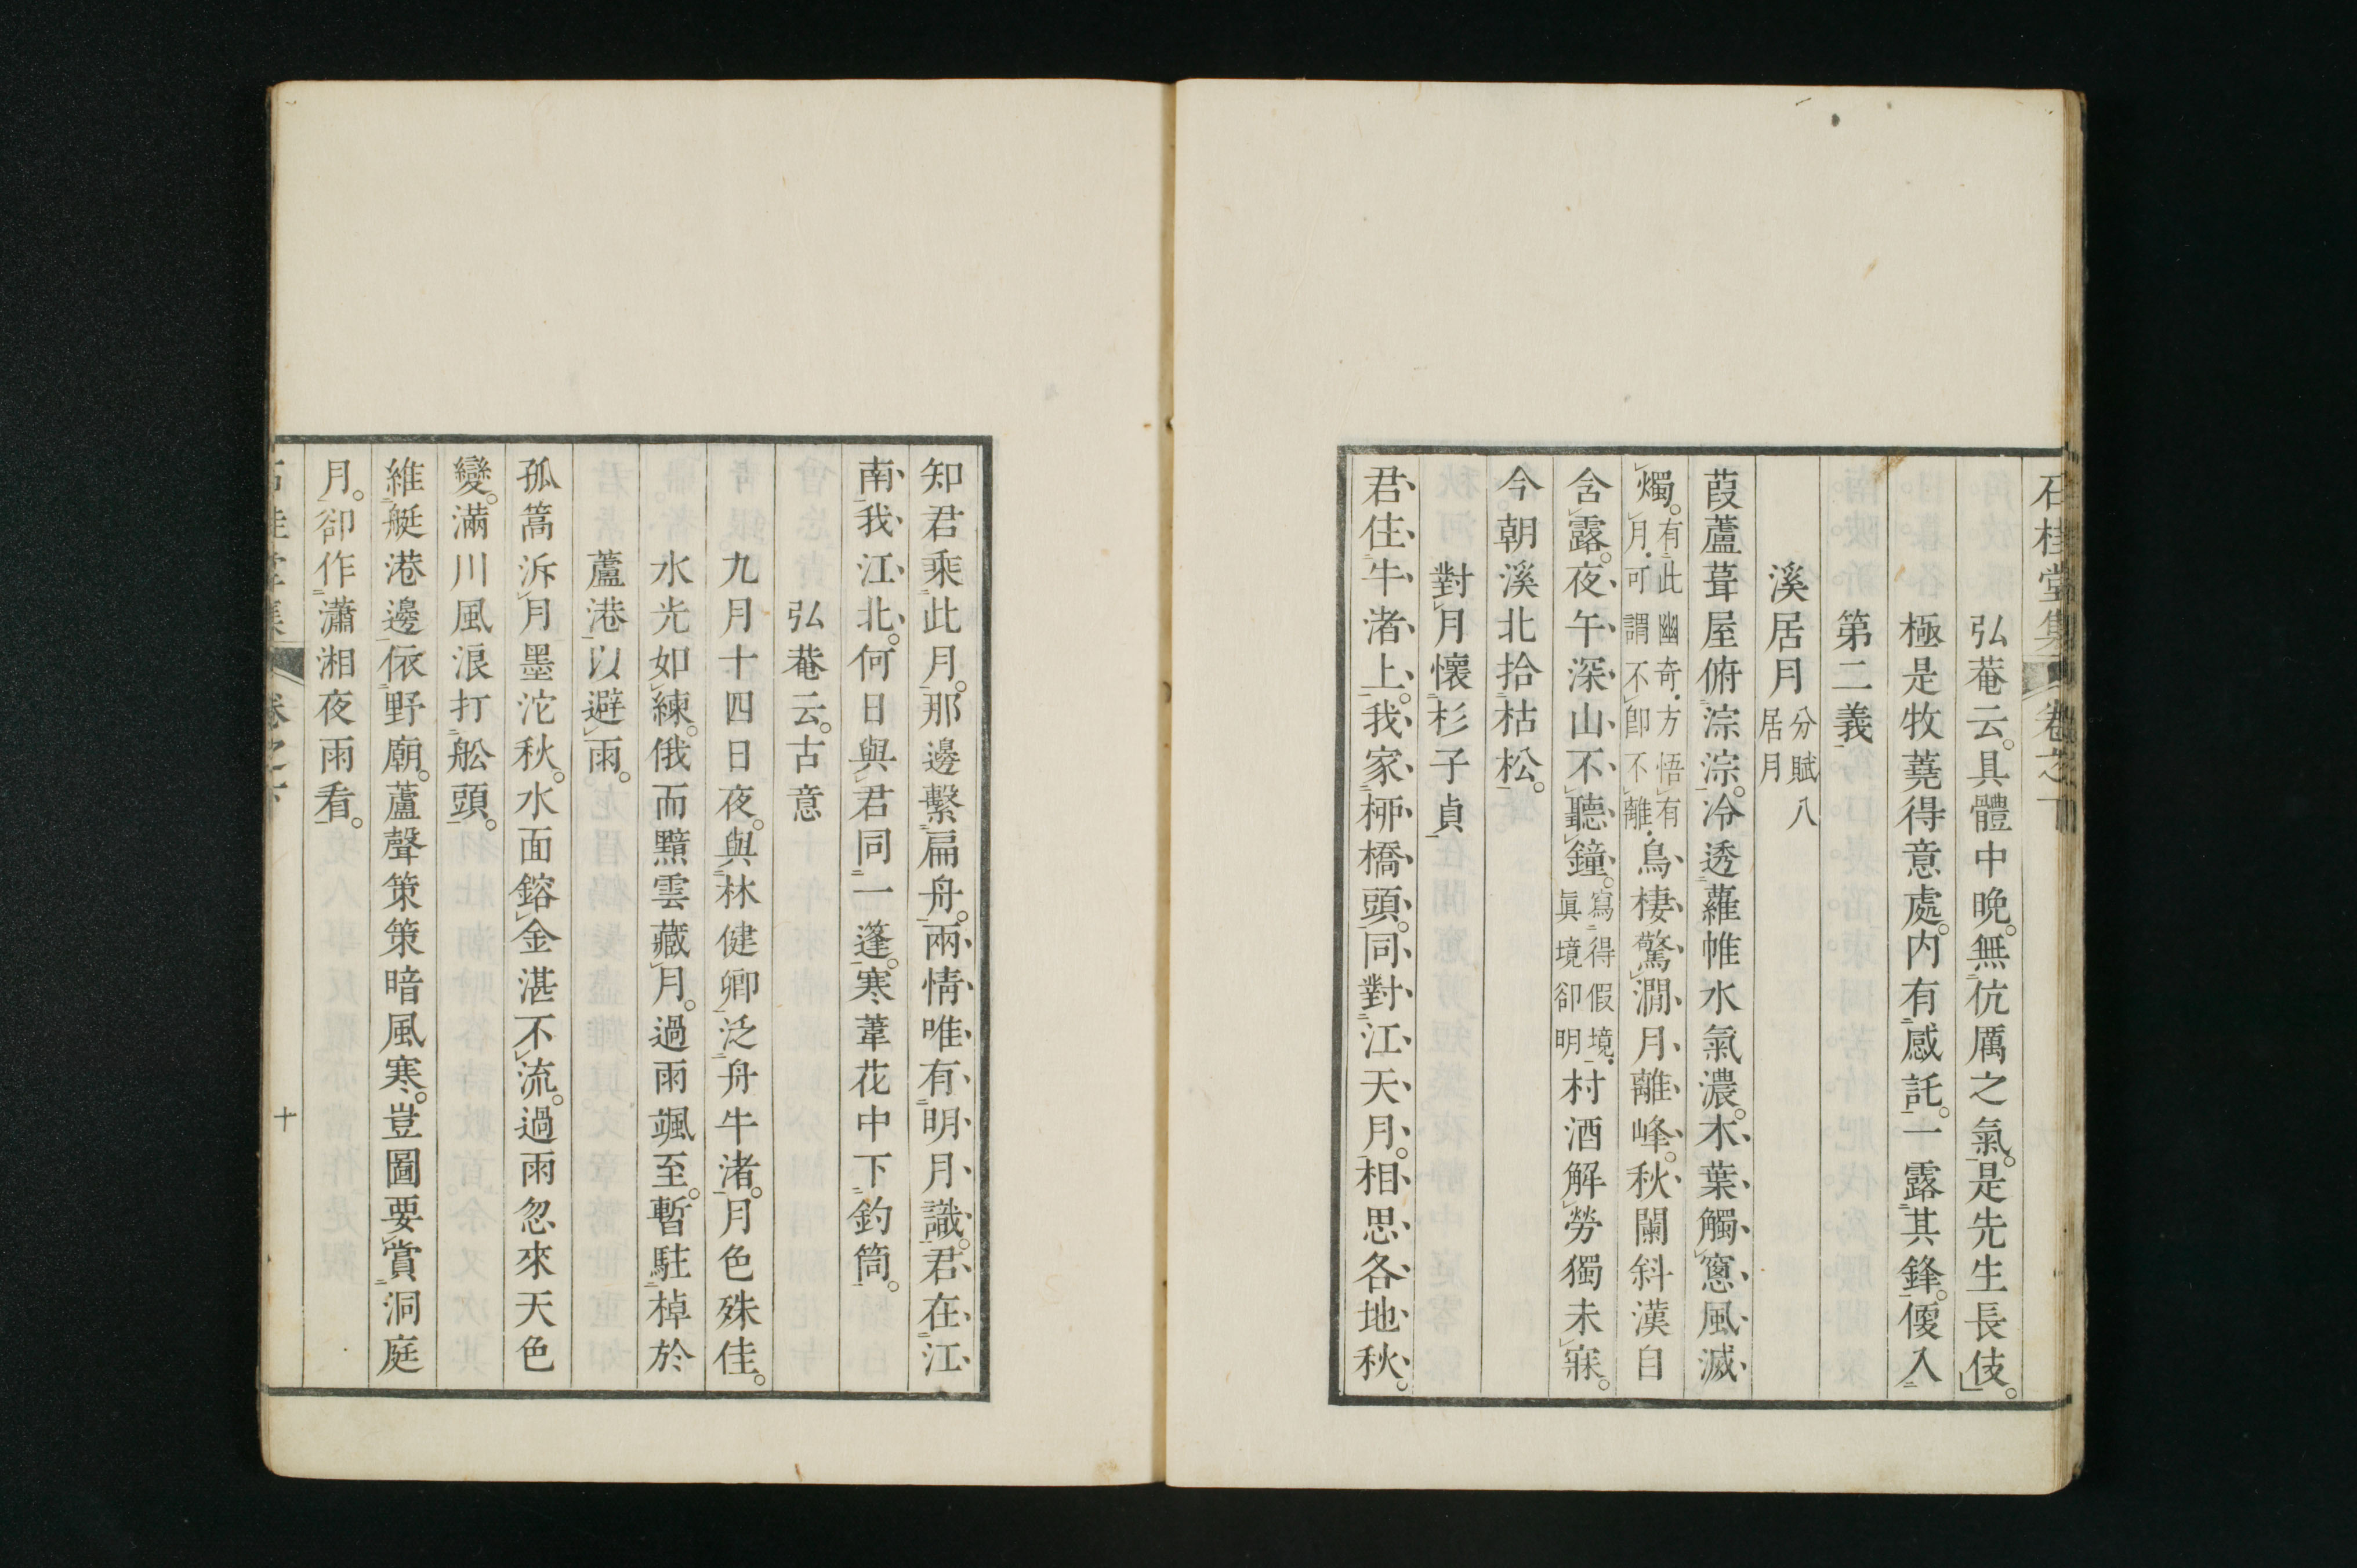 石桂堂集 卷之下
弘菴云。具體中晚。無伉厲之氣。是先生長伎。
極是牧蕘得意處。内有感託。一露其鋒。便入
第二義
溪居月 分賦八居月
葭蘆葺屋俯淙淙。冷透蘿帷水氣濃。木葉觸窻風滅
燭。有此幽奇方悟有月可謂不卽不離鳥棲驚澗月離峰。秋闌斜漢自
含露。夜午深山不聽鐘。寫得假境眞境卻明村酒解勞獨未寐。
今朝溪北拾枯松。
對月懷杉子貞
君住牛渚上。我家栁橋頭。同對江天月。相思各地秋。
知君乘此月。那邊繫扁舟。兩情唯有明月識。君在江
南我江北。何日與君同一蓬。寒葦花中下釣筒。
弘菴云。古意
九月十四日夜。與林健卿泛舟牛渚。月色殊佳。
水光如練。俄而黯雲藏月。過雨颯至。暫駐棹於
蘆港以避雨。
孤篙泝月墨沱秋。水面鎔金湛不流。過雨忽來天色
變。滿川風浪打舩頭。
維艇港邊依野廟。蘆聲策策暗風寒。豈圖要賞洞庭
月。卻作瀟湘夜雨看。
卷之下
十